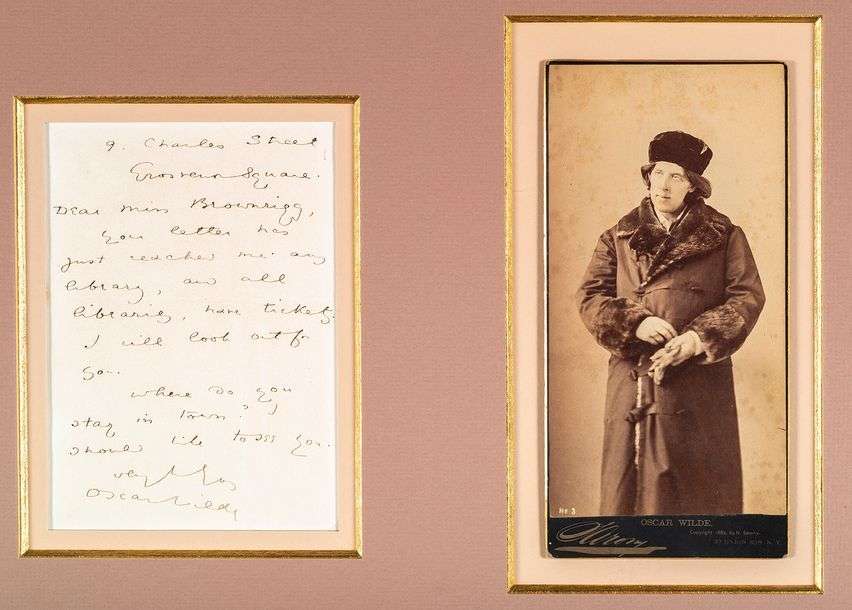 9. Charles Street
Grosvenor Square.
Dear Miss Brownrigg,
Your letter has
just reached me: any
library, and all
libraries, have tickets.
I will look out for
you.
Where do you
stay in town? I
should like to see you.
Very truly yours
Oscar Wilde
No 3
OSCAR WILDE.
Copyright 1882, by N. Sarony.
Sarony
37 UNION SQR. N.Y.